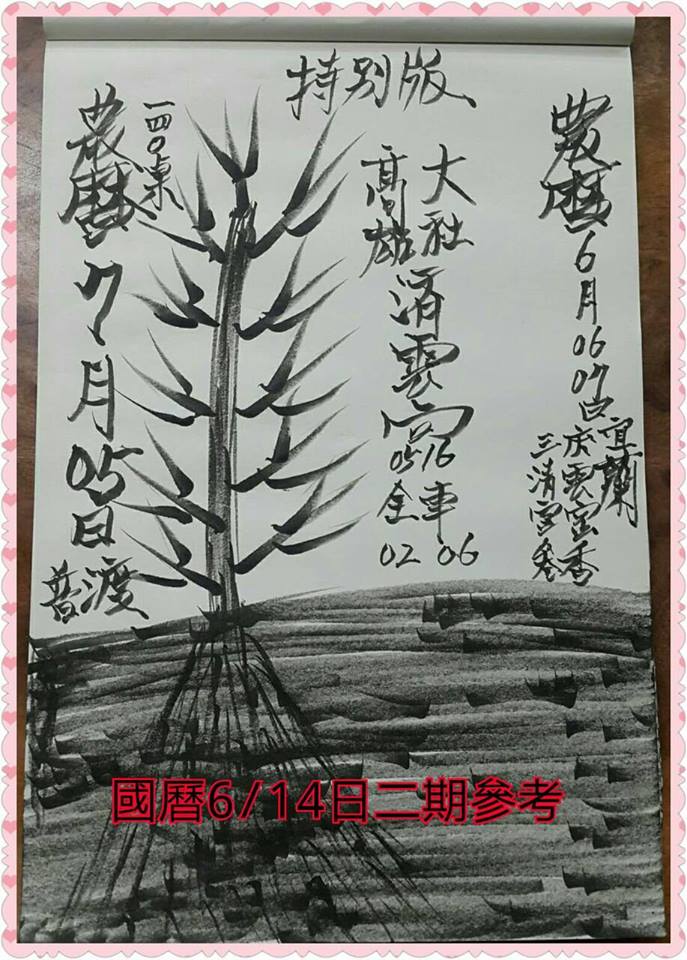 特別版
農曆6月06 07日宜蘭
慶雲宮香
三清宮參
大社
高雄
清雲宮
16車06
05全02
一四0桌
農曆7月05日
普渡
國曆6/14日二期參考